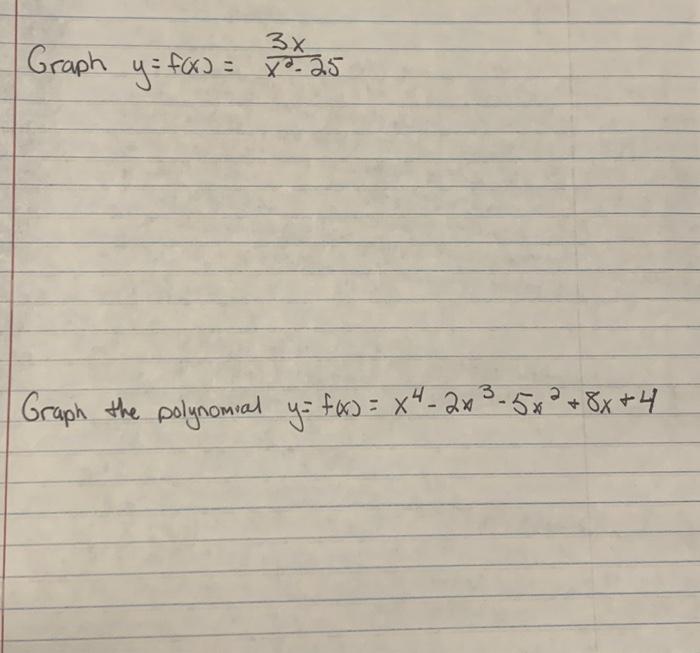 Graph y = f(x) = 3x / x² - 25
Graph the polynomial y = f(x) = x⁴ - 2x³ - 5x² + 8x + 4